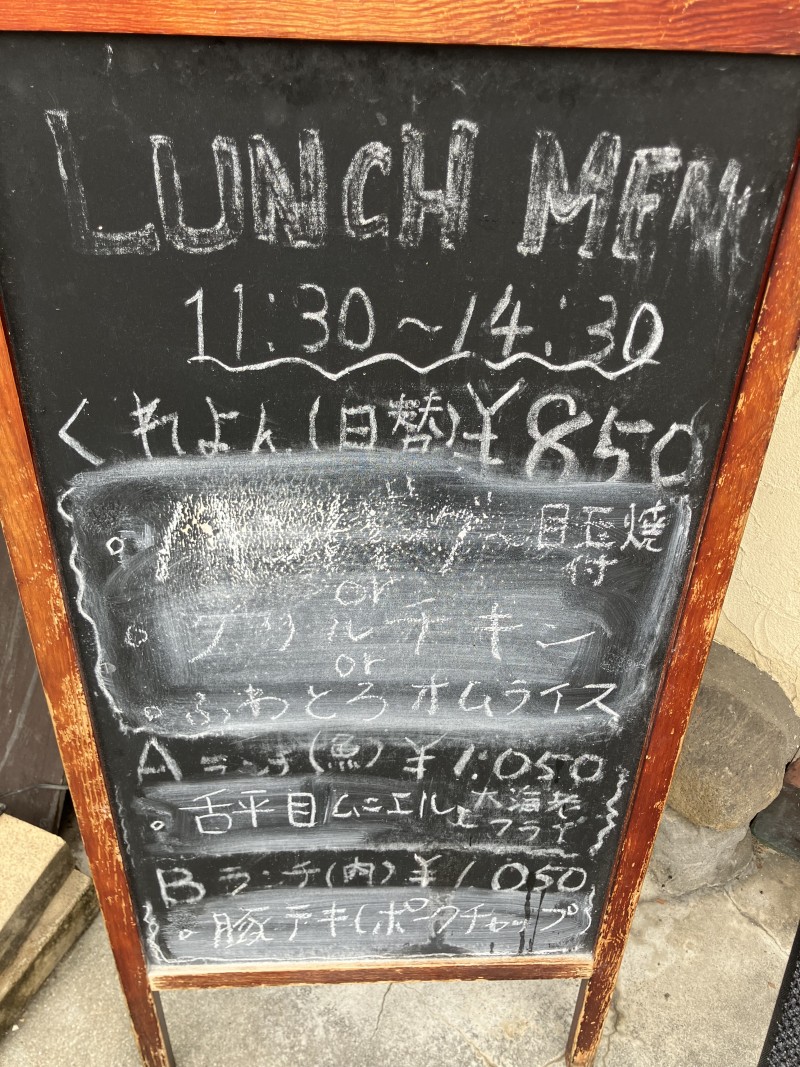 LUNCH MENU
11:30～14:30
くれよん(日替)¥850
。ハンバーグ 目玉焼付
or
。グリルチキン
or
。ふわとろオムライス
Aランチ(魚)¥1.050
。舌平目ムニエル 大海老フライ
Bランチ(肉)¥1.050
。豚テキ(ポークチャップ)